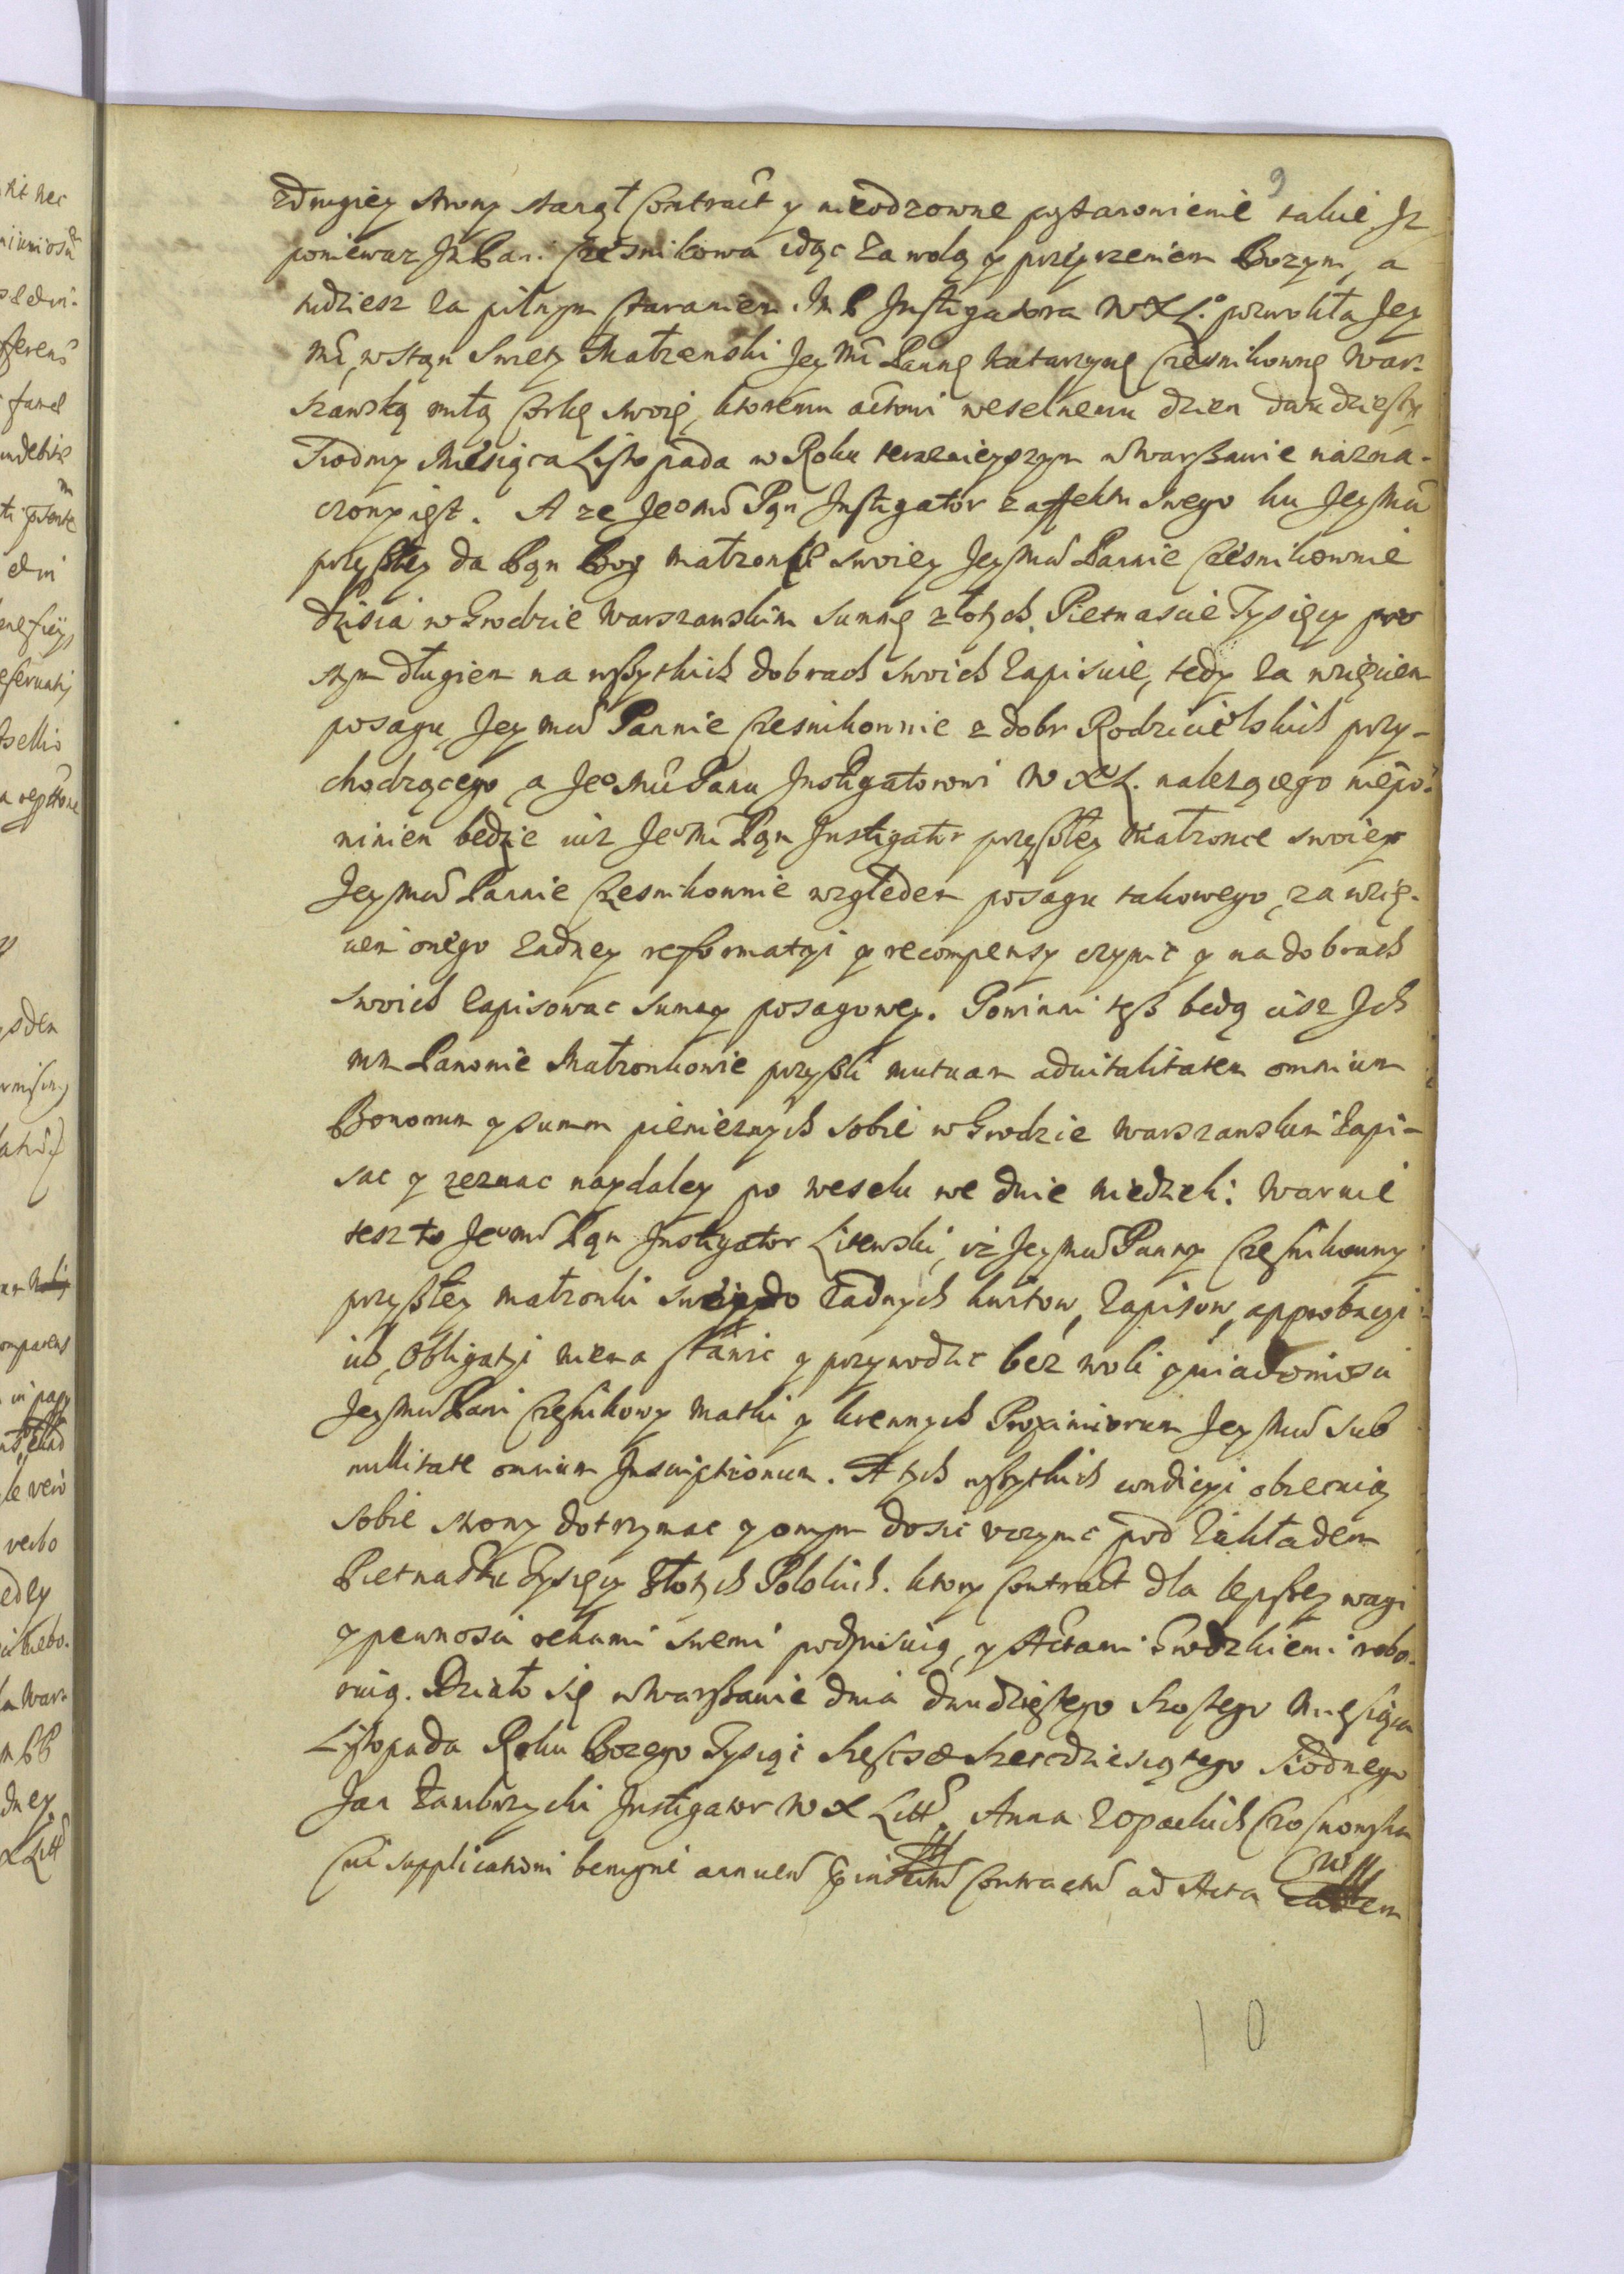 9
zdrugiey strony stanął Contract y nieodzowne postanowienie takie, Jz
poniewaz Jm Pani Czesnikowa idąc za wolą y przeyrzeniem Bozym, a
tudziesz za pilnym staraniem Jm P Instigatora W X L. pozwoliła Jey
Mć, w stan Swięty Małzenski Jey Mć Pannę Katarzynę Czesnikownę War-
szawską miłą Corkę swoię, ktoremu actowi weselnemu dzien dwudziesty
Siodmy Miesiąca Listopada w Roku terazniejszym w Warszawie nazna-
czony iest. A ze Jeo Mć Pan Instigator z affektu swego ku Jey Mci
przyszłey da Pan Bog małzonce swoiey Jey Mci Pannie Czesnikownie
dzisia w Grodzie Warszawskim summę złotych Pietnascie Tysięcy pro
stym długiem na wszytkich dobrach swoich zapisuie, tedy za wzięciem
posagu Jey mci Pannie Czesnikownie z dobr Rodzicielskich przy-
chodzącego, a Jeo Mci Panu Instigatorowi W X L. nalezącego niepo-
winien będzie iuz Jeo Mć Pan Instigator przyszłey Małzonce swoiey
Jey Mci Pannie Czesnikownie względem posagu takowego, za wzię-
ciem onego zadney reformatyi y recompensy czynic y na dobrach
swoich zapisowac summy posagowey. Powinni tesz będą cisz Ich
mm Panowie Małzonkowie przyszli mutuam aduitalitatem omnium
Bonorum y summ pienieznych sobie w Grodzie Warszawskim zapi-
sac y zeznac naydaley po weselu we dwie niedzieli: Waruie
tesz to Jeo Mć Pan Instigator Litewski, iz Jey Mci Panny Czesnikowny
przyszłey małzonki swoiey do zadnych kwitow, zapisow, approbacyi
ich, Obligatyi niema stawic y przywodzic bez woli y wiadomosci
Jey Mci Pani Czesnikowy matki y krewnych Proximiorum Jey Mci sub
nullitate omnium Inscriptionum. A tych wszytkich condicyi obiecuią
sobie strony dotrzymac y onym dosic vczynic pod zakładem
Pietnastu Tysięcy Złotych Polskich. ktory Contract dla lepszey wagi
y pewnosci rękami swemi podpisuią, y Actami Grodzkiemi robo-
ruią. Działo się w Warszawie dnia dwudziestego szostego Miesiąca
Listopada Roku Bozego Tysiąc szescset szescdziesiątego siodmego
Jan Zambrzycki Instigator W X Litt. Anna z Opackich
Cui supplicationi benigne annuen Contractum ad Acta
10